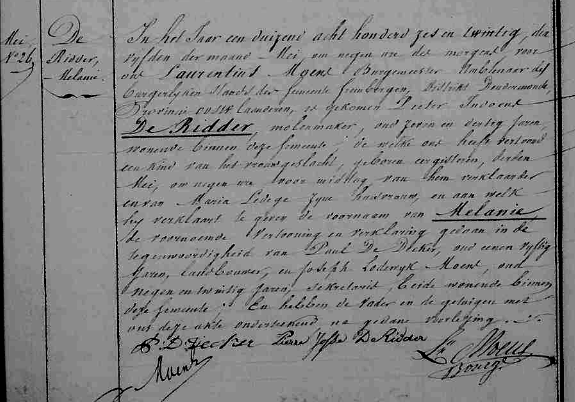 Mei
N° 26
De
Ridder,
Melanie
In het Jaar een duizend acht honderd zes en twintig, den
vyfden der maand Mei om negen ure des morgens voor
ons Laurentius Moens Burgemeester Ambtenaer des
burgerlyken Stands der Gemeente Grembergen, Distrikt Dendermonde,
Provincie oostvlaanderen, is gekomen Peeter Judocus
De Ridder, molenmaker, oud zeven en dertig Jaren,
wonende binnen deze Gemeente; de welke ons heeft vertoond
een kind van het vrouwgeslacht, geboren eergisteren, derden
Mei, om negen ure voor middag van hem verklaarder
en van Maria Ledege zyne huisvrouw, en aan welk
hy verklaart te geven de voornaam van Melanie
de voornoemde vertooning en verklaring gedaan in de
tegenwoordigheid van Paul De Decker, oud eenen vyftig
Jaren, landbouwer, en Joseph Lodewyk Moens, oud
negen en twintig Jaren, sekretaris, beide wonende binnen
deze Gemeente; En hebben de Vader en de getuigen met
ons deze akte onderteekend na gedane voorlezing.
P. D Decker Pierre Josse De Ridder
Moens
Ls Moens
Bourge